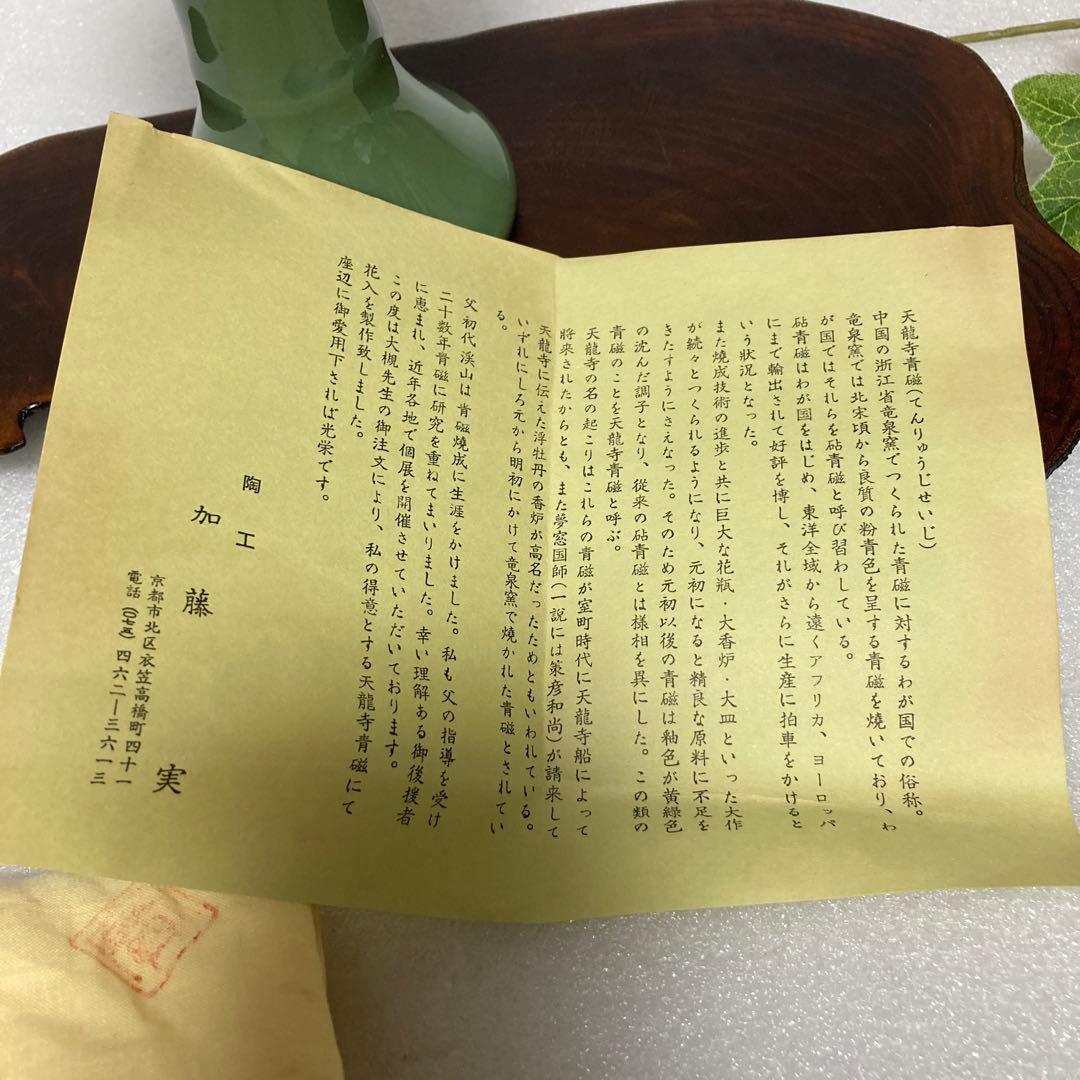 天龍寺青磁(てんりゅうじせいじ)
中国の浙江省竜泉窯でつくられた青磁に対するわが国での俗称。
竜泉窯では北宋頃から良質の粉青色を呈する青磁を焼いており、わ
が国ではそれらを砧青磁と呼び習わしている。
砧青磁はわが国をはじめ、東洋全域から遠くアフリカ、ヨーロッパ
にまで輸出されて好評を博し、それがさらに生産に拍車をかけると
いう状況となった。
また焼成技術の進歩と共に巨大な花瓶・大香炉・大皿といった大作
が続々とつくられるようになり、元初になると精良な原料に不足を
きたすようにさえなった。そのため元初以後の青磁は釉色が黄緑色
の沈んだ調子となり、従来の砧青磁とは様相を異にした。この類の
青磁のことを天龍寺青磁と呼ぶ。
天龍寺の名の起こりはこれらの青磁が室町時代に天龍寺船によって
将来されたからとも、また夢窓国師(一説には策彦和尚)が請来して
天龍寺に伝えた浮牡丹の香炉が高名だったためともいわれている。
いずれにしろ元から明初にかけて竜泉窯で焼かれた青磁とされてい
る。
父初代渓山は青磁焼成に生涯をかけました。私も父の指導を受け
二十数年青磁に研究を重ねてまいりました。幸い理解ある御後援者
に恵まれ、近年各地で個展を開催させていただいております。
この度は大槻先生の御注文により、私の得意とする天龍寺青磁にて
花入を製作致しました。
座辺に御愛用下されば光栄です。
陶工
加藤実
京都市北区衣笠高橋町四十一
電話(〇七五)四六二―三六一三